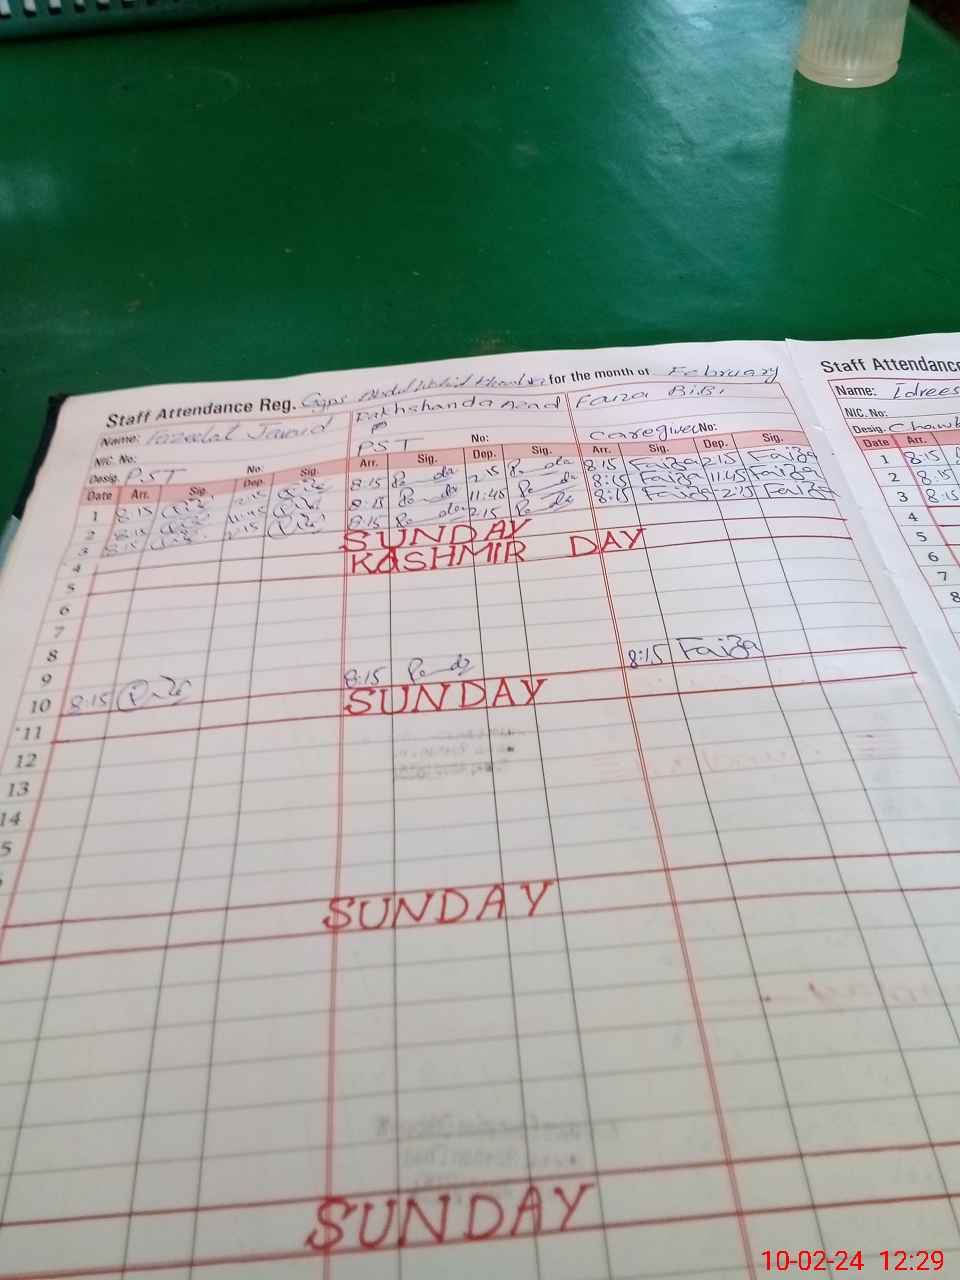 Staff Attendance Reg. for the month of February
Name: Javaid Rakhshanda Azad Faiza BiBi
NIC. No:
Desig. PST No: PST No: Caregiver No:
Date Arr. Sig. Dep. Sig. Arr. Sig. Dep. Sig. Arr. Sig. Dep. Sig.
1 8:15 2:15 8:15 2:15 8:15 Faiza 2:15 Faiza
2 8:15 11:45 8:15 11:45 8:15 Faiza 11:45 Faiza
3 8:15 2:15 8:15 2:15 8:15 Faiza 2:15 Faiza
4 SUNDAY
5 KASHMIR DAY
6
7
8
9
10 8:15 8:15 8:15 Faiza
11 SUNDAY
12
13
14
5
SUNDAY
SUNDAY
Staff Attendance
Name: Idrees
NIC. No:
Desig. Chowk
Date Arr.
1 8:15
2 8:15
3 8:15
4
5
6
7
8
10-02-24 12:29